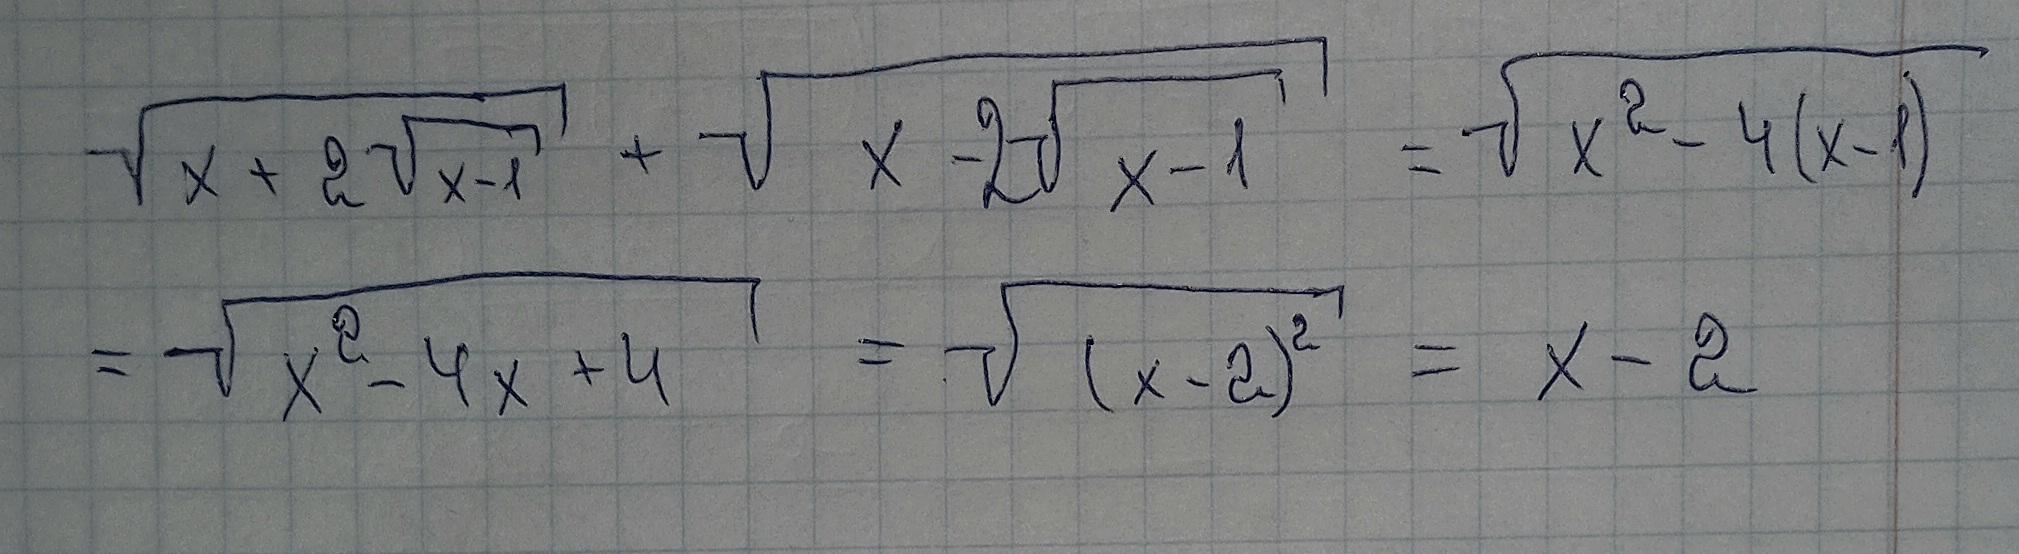 √(x + 2√(x-1)) + √(x - 2√(x-1)) = √(x² - 4(x-1))
= √(x² - 4x + 4) = √((x-2)²) = x - 2